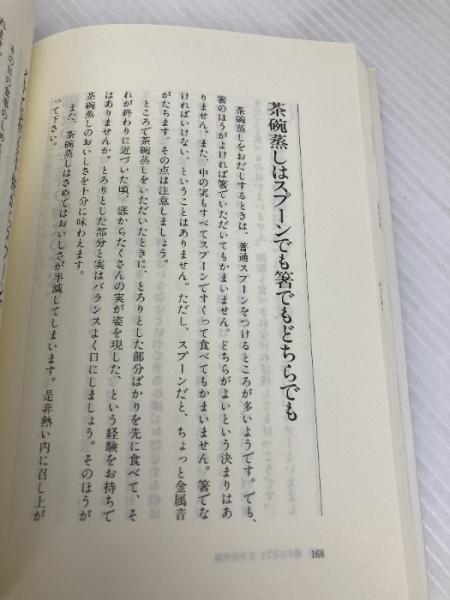 茶碗蒸しはスプーンでも箸でもどちらでも
茶碗蒸しをおだしするときは、普通スプーンをつけるところが多いようです。でも、
箸のほうがよければ箸でいただいてもかまいません。どちらがよいという決まりはあ
りません。また、中の実もすべてスプーンですくって食べてもかまいません。箸でな
ければいけない、ということはありません。ただし、スプーンだと、ちょっと金属音
がたちます。その点は注意しましょう。
ところで茶碗蒸しをいただいたときに、とろりとした部分ばかりを先に食べて、そ
れが終わりに近づいた頃、底からたくさんの実が姿を現した、という経験をお持ちで
はありませんか。とろりとした部分と実はバランスよく口にしましょう。そのほうが
茶碗蒸しのおいしさを十分に味わえます。
また、茶碗蒸しはさめてはおいしさが半減してしまいます。是非熱い内に召し上が
って下さい。
168